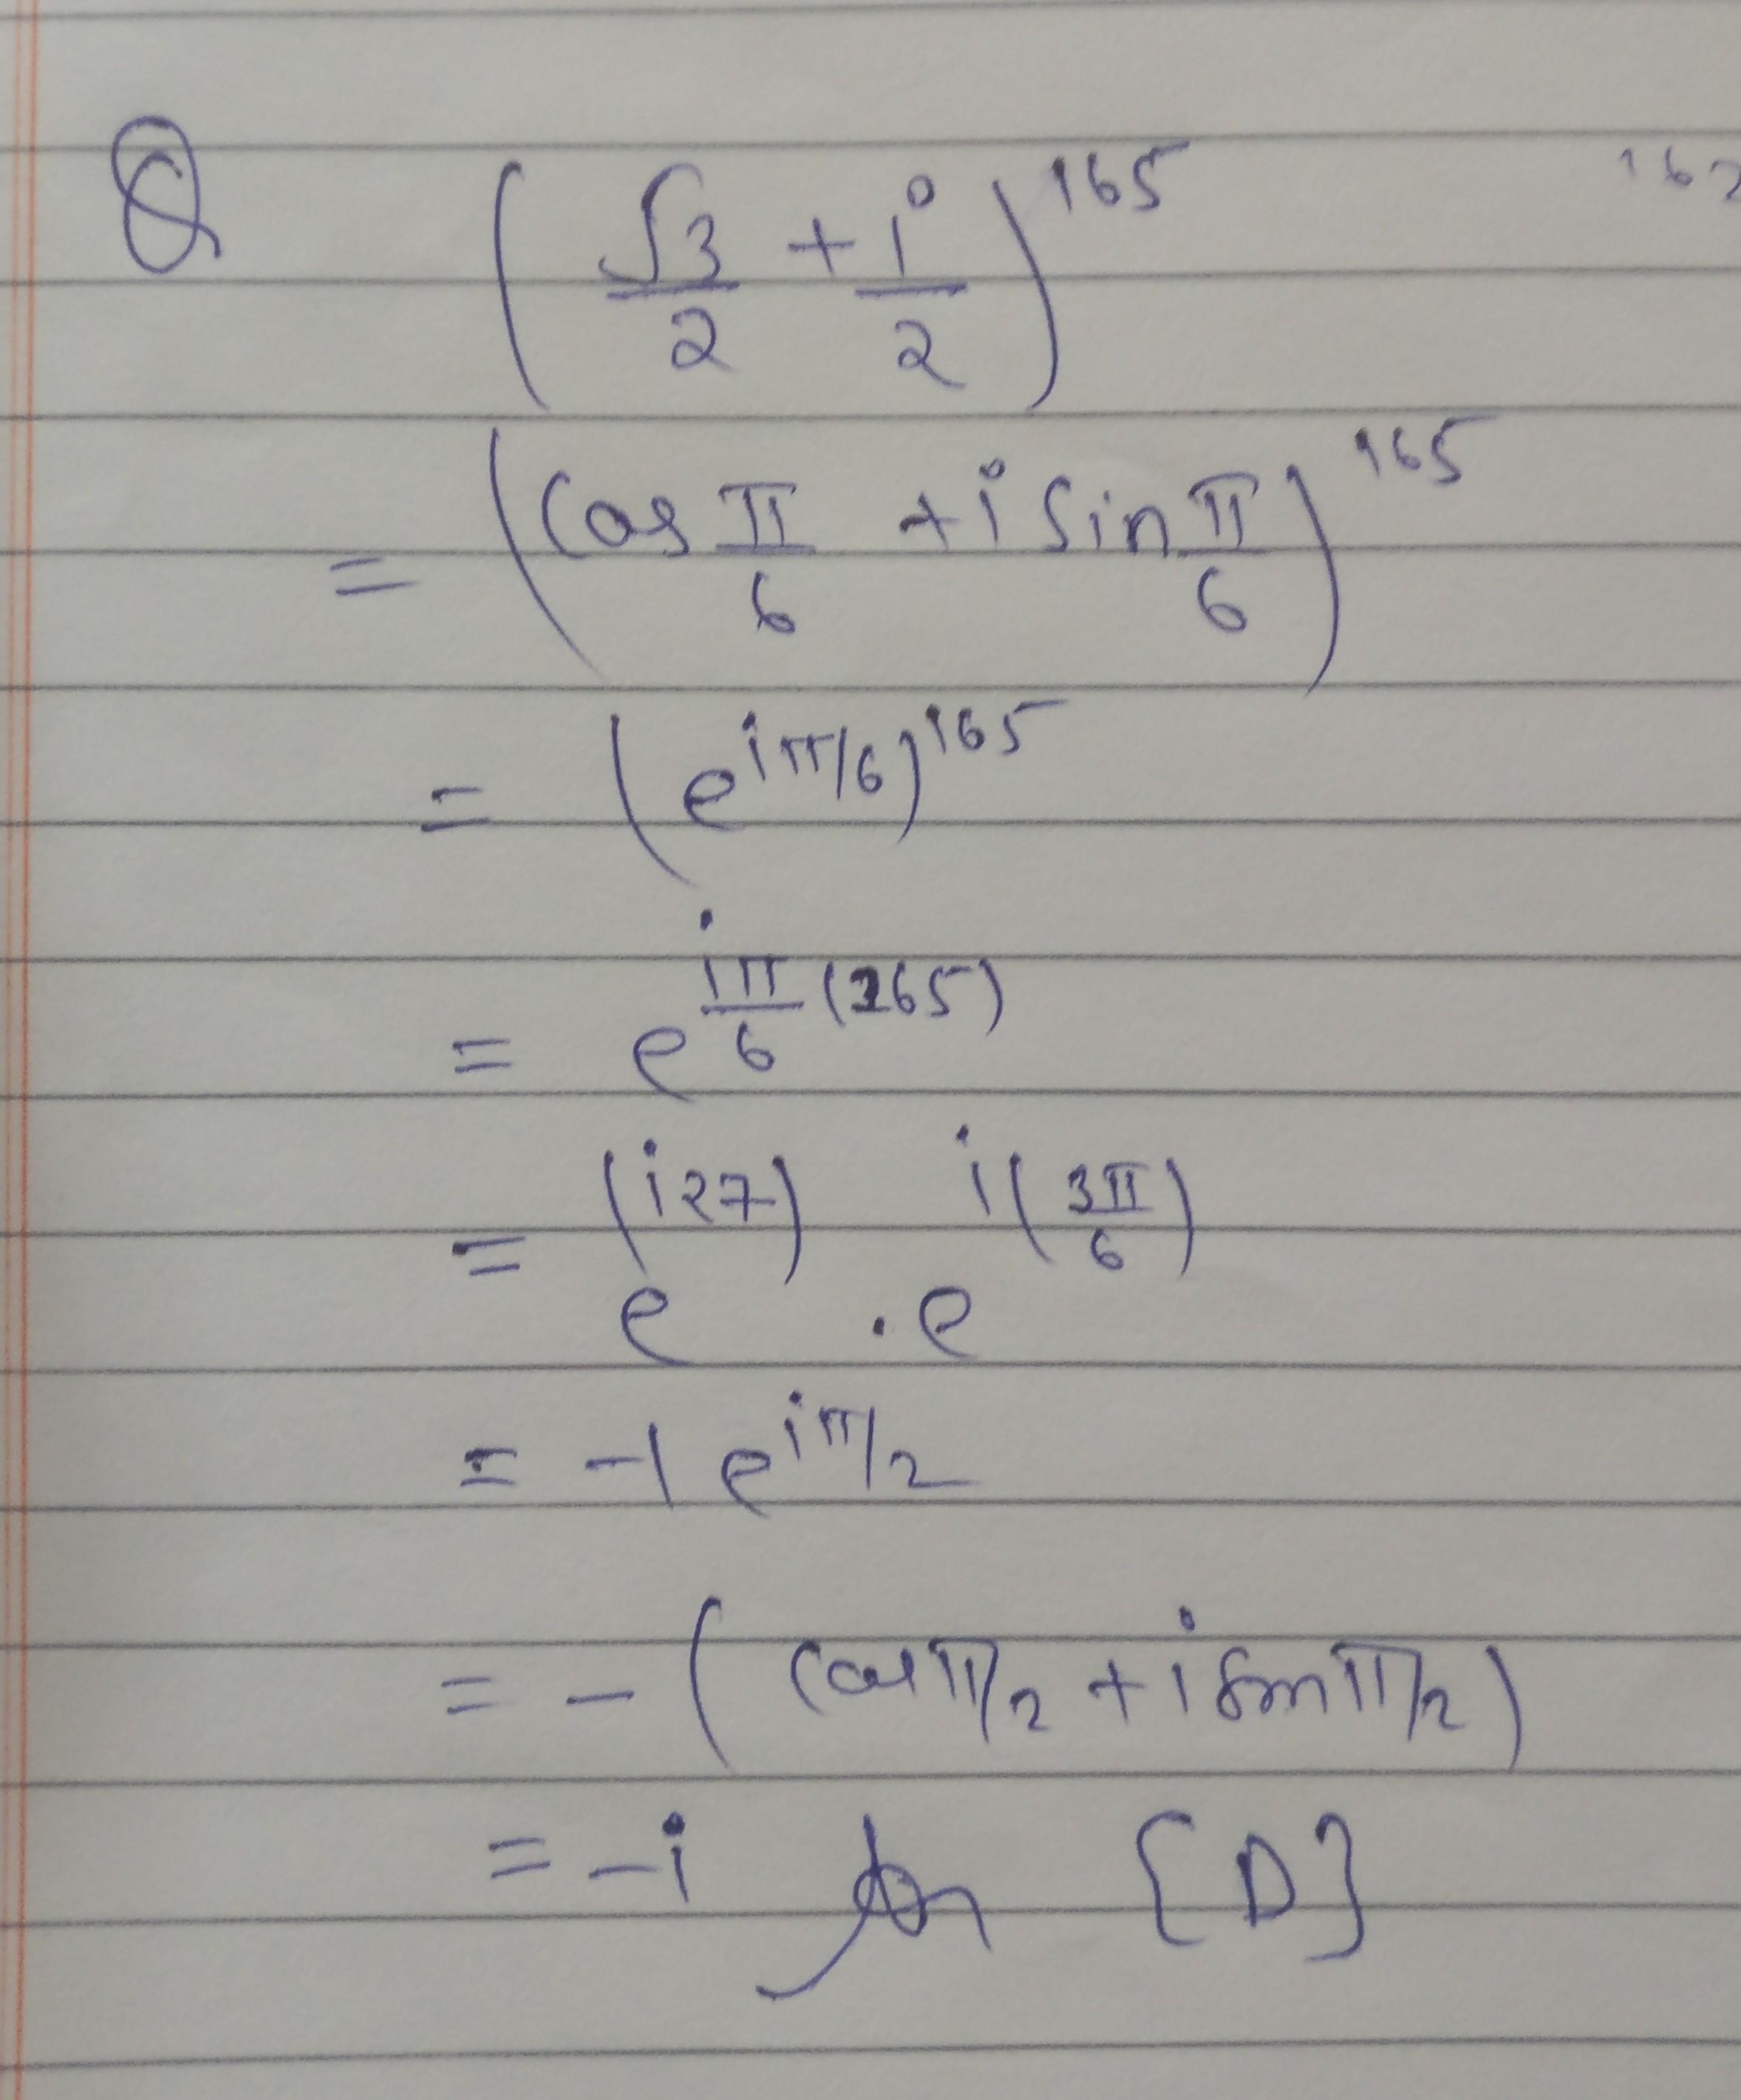 Q (√3/2 + i/2)^165 162
= (cos π/6 + i sin π/6)^165
= (e^iπ/6)^165
= e^iπ/6 (165)
= e^(i27) . e^i(3π/6)
= -1 e^iπ/2
= - (cos π/2 + i sin π/2)
= -i An {D}